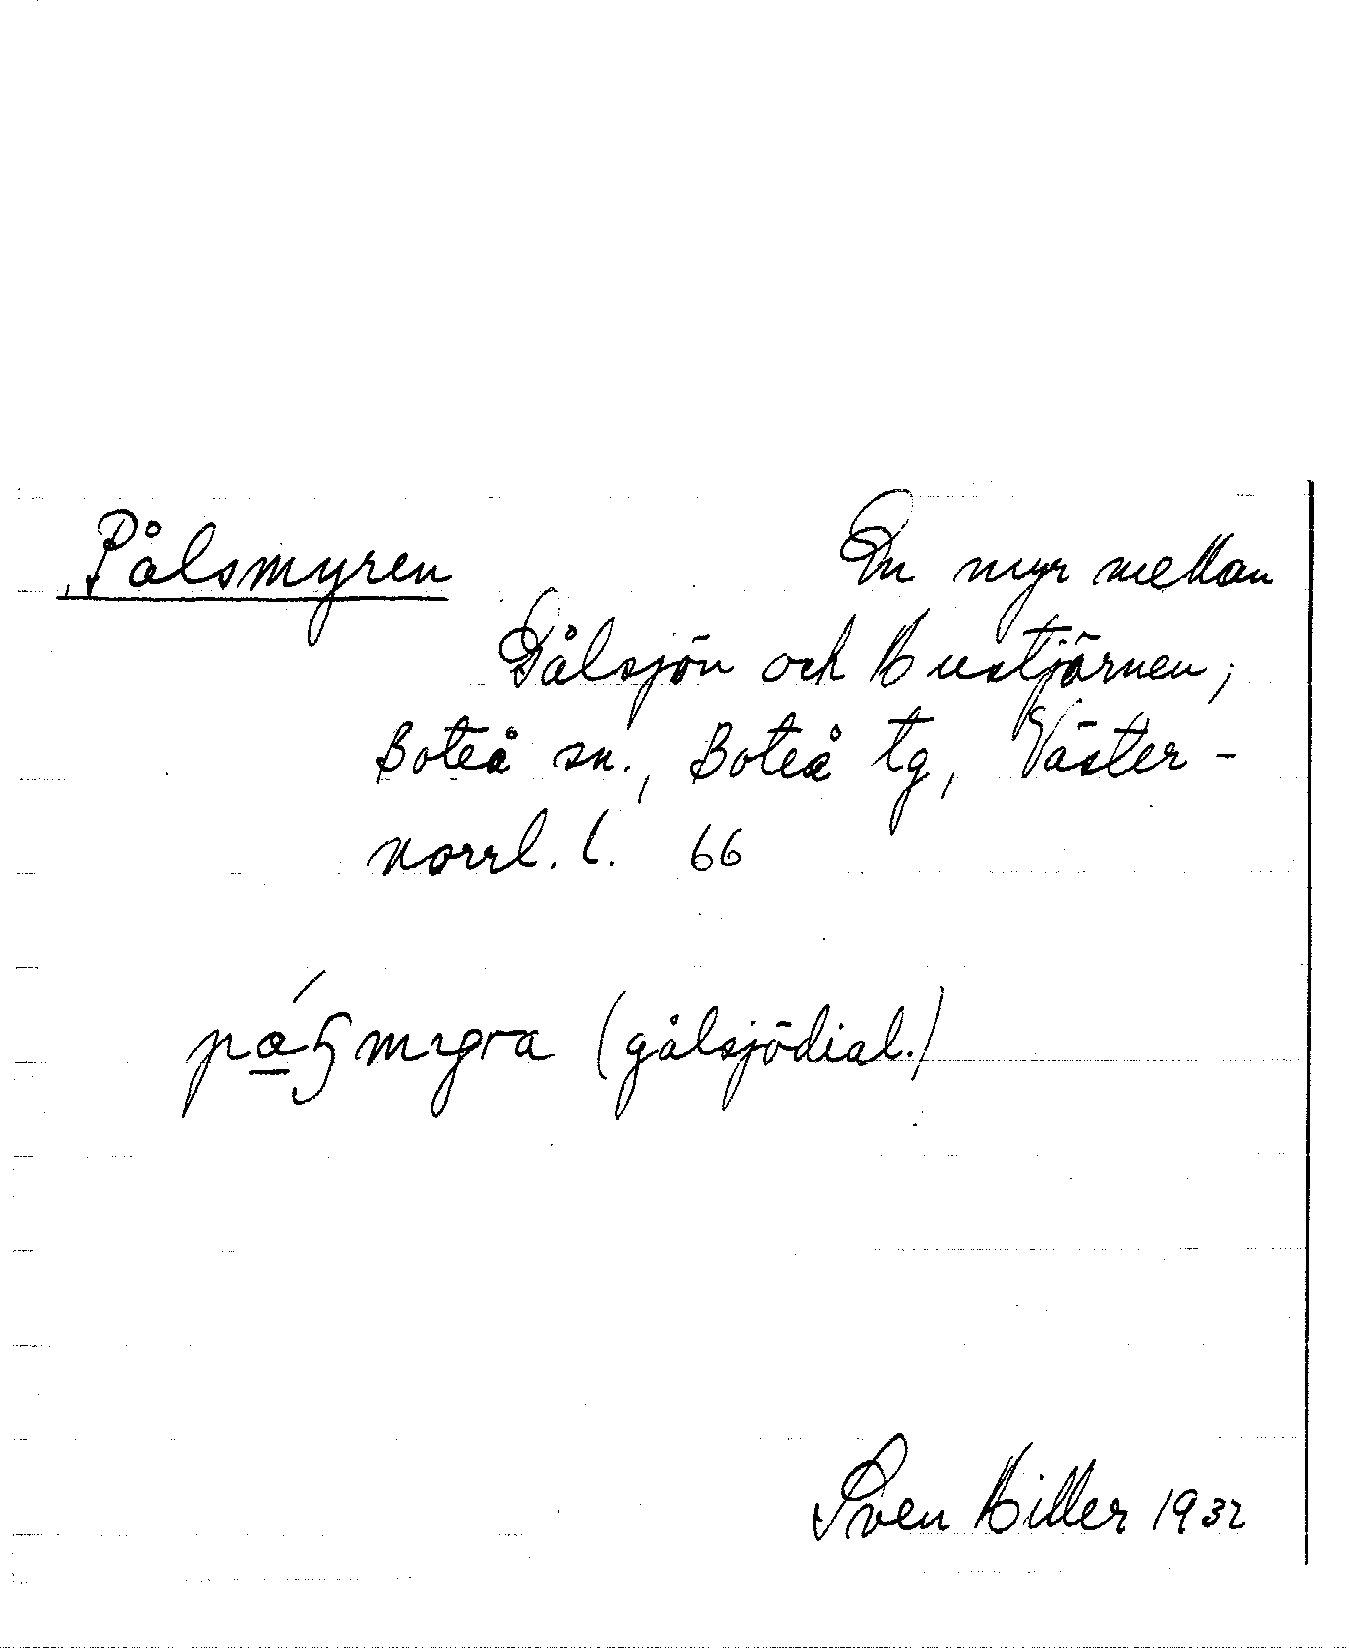 Pålsmyren En myr mellan
Gålsjön och Hustjärnen;
Boteå sn., Boteå tg, Väster-
norrl. l. 66
(gålsjödial.)
Sven Hiller 1932